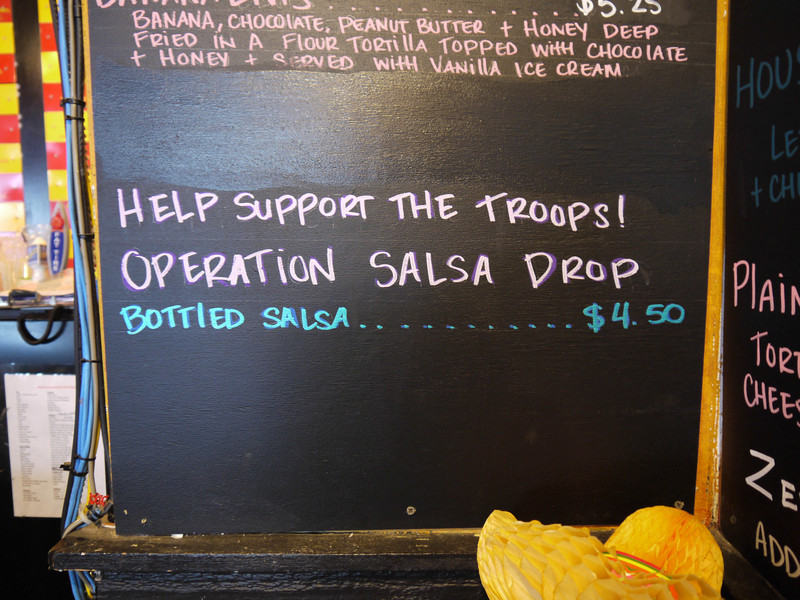 $5.25
BANANA, CHOCOLATE, PEANUT BUTTER + HONEY DEEP
FRIED IN A FLOUR TORTILLA TOPPED WITH CHOCOLATE
+ HONEY + SERVED WITH VANILLA ICE CREAM
HELP SUPPORT THE TROOPS!
OPERATION SALSA DROP
BOTTLED SALSA............ $4.50
HOUS
LE
+ CH
PLAIN
TORT
CHEES
ZE
ADD